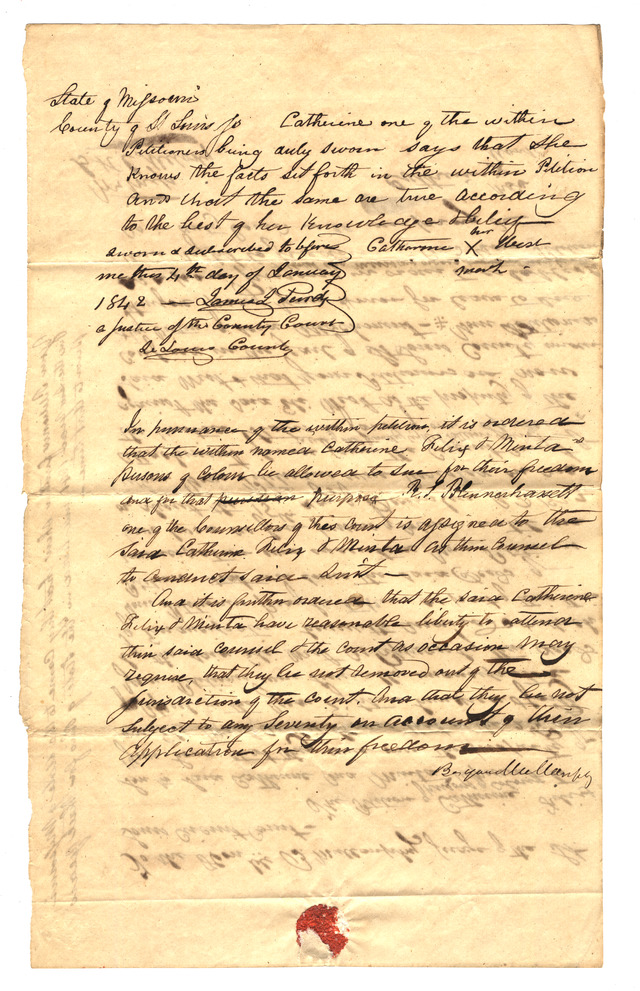 State of Missouri
County of St Louis Ss Catherine one of the within
Petitioners being duly sworn says that she
knows the facts set forth in the within Petition
and that the same are true according
to the best of her knowledge & belief
sworn & subscribed to before Catharine her X West
me this 4th day of January mark
1842 — James Purdy
a Justice of the County Court
St Louis County
In pursuance of the within petition, it is ordered
that the within named Catherine Felix & Minta
persons of Colour be allowed to sue for their freedom
and for that purpose R. S. Blennerhassett
one of the Counsellors of this Court is assigned to the
said Catherine Felix & Minta as their Counsel
to conduct said Suit —
And it is further ordered that the said Catherine
Felix & Minta have reasonable liberty to attend
their said counsel & the Court as occasion may
require, that they be not removed out of the
jurisdiction of the court. And that they be not
subject to any severity on account of their
application for their freedom
Bryan Mullanphy